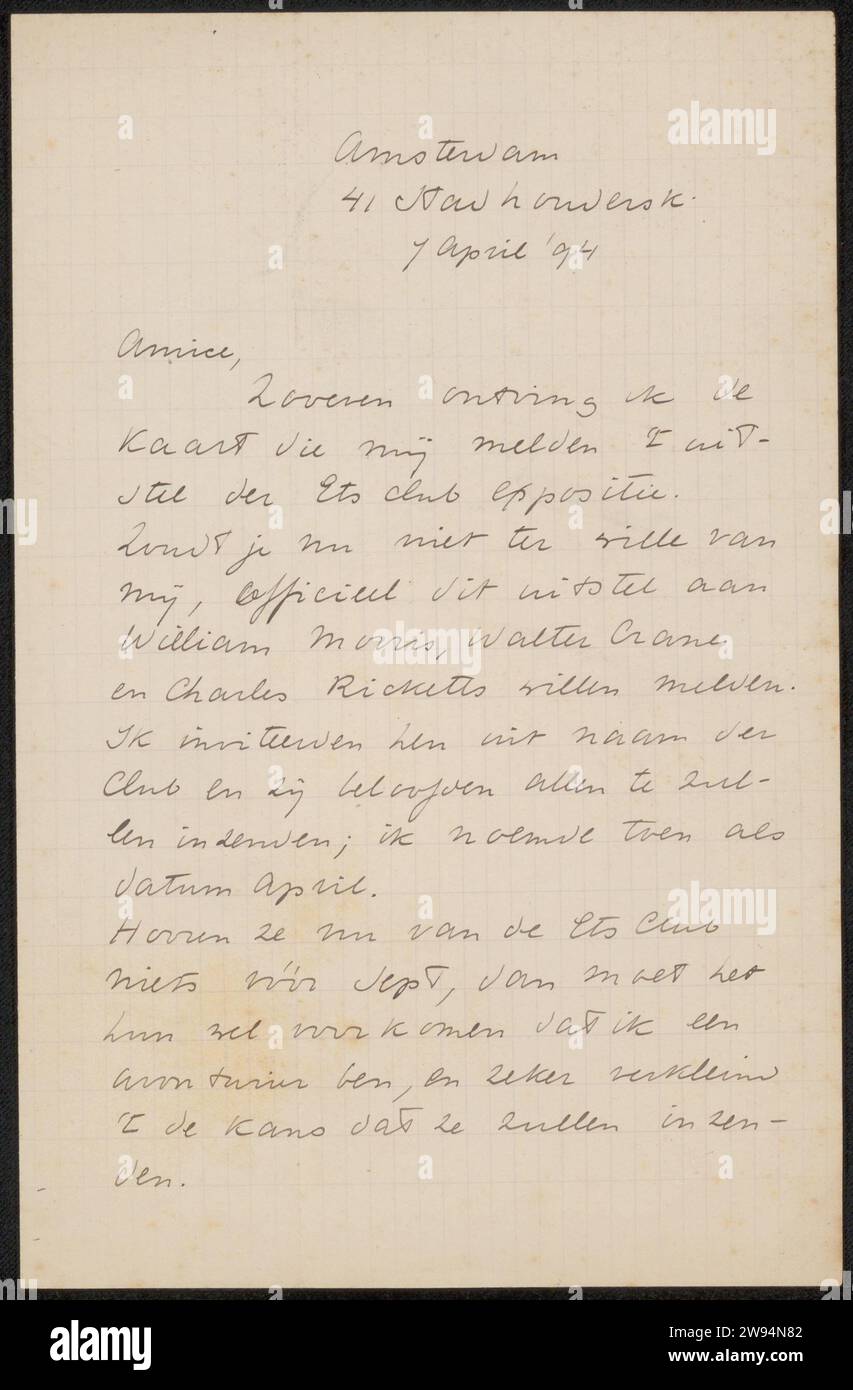 Amsterdam
41 Stadhoudersk.
7 April '94
Amice,
Zoeven ontving ik de
Kaart die mij melden 't uit-
stel der Etsclub expositie.
Zoudt je nu niet ter wille van
mij, officieel dit uitstel aan
William Morris, Walter Crane
en Charles Ricketts willen melden.
Ik inviteerden hen uit naam der
Club en zij beloofden allen te zul-
len inzenden; ik noemde toen als
datum April.
Hooren ze nu van de Ets Club
niets vóór Sept, dan moet het
hun wel voorkomen dat ik een
avonturier ben, en zeker verkleind
't de kans dat ze zullen inzen-
den.
alamy
Image ID: 2W94N82
www.alamy.com